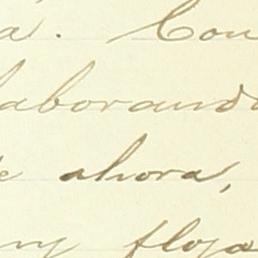 a. Con
laborando
e ahora,
ny floja